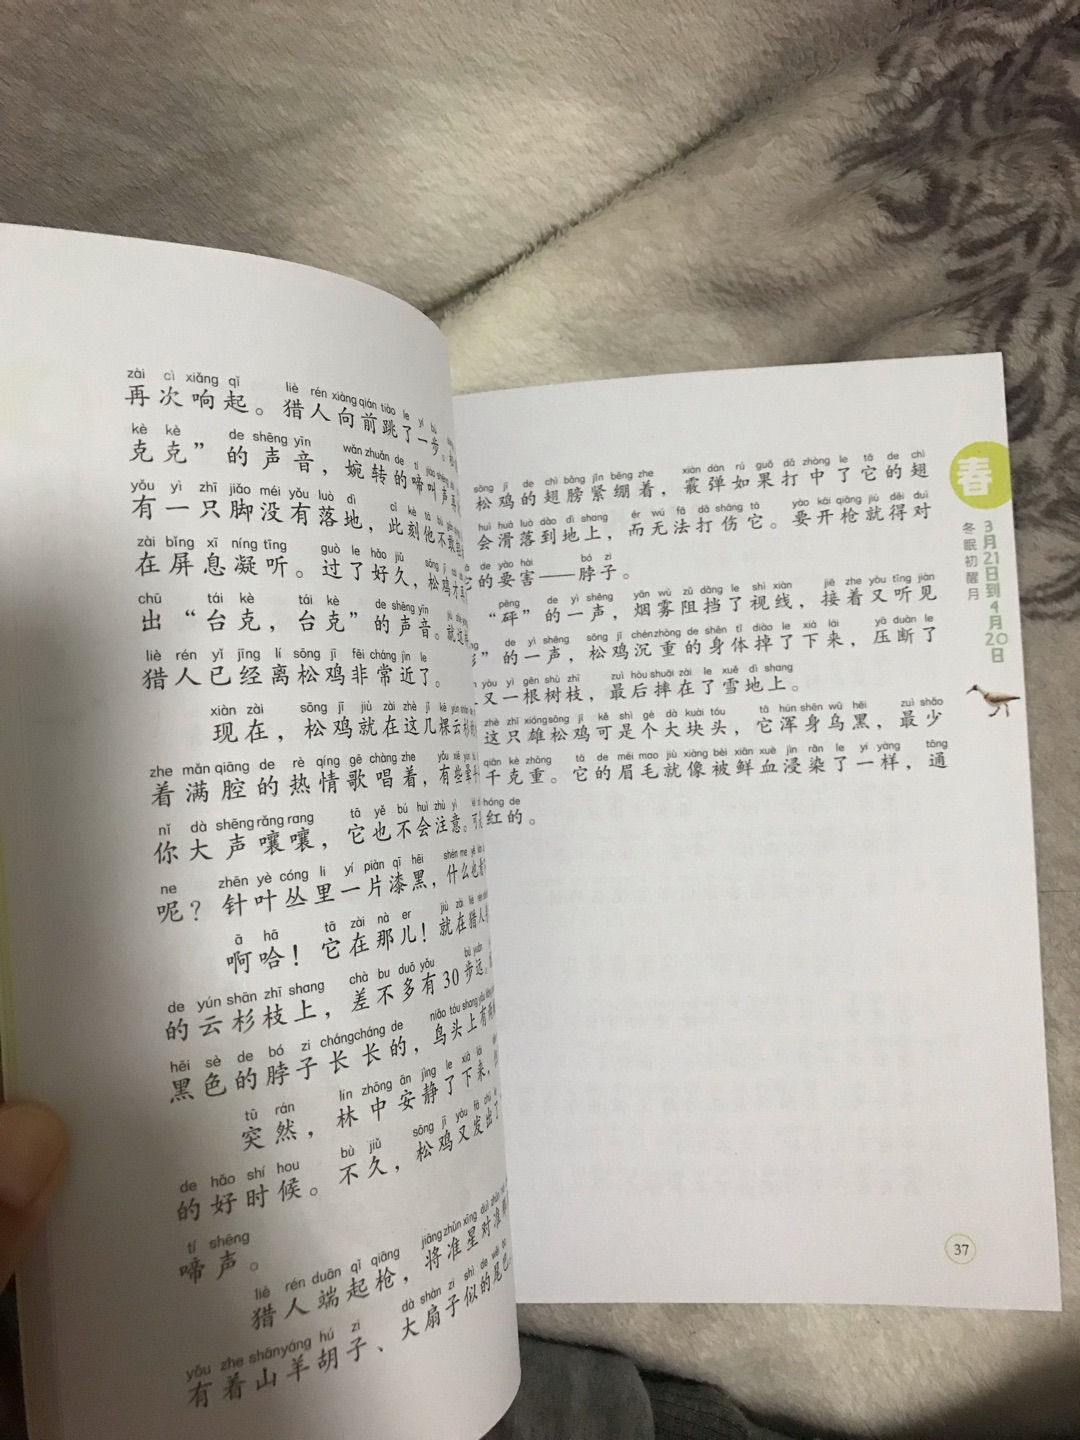 zài cì xiǎng qǐ liè rén xiàng qián tiào le yí bù
再次响起。猎人向前跳了一步。
kè kè de shēng yīn wǎn zhuǎn de tí jiào shēng
克克”的声音，婉转的啼叫声
yǒu yì zhī jiǎo méi yǒu luò dì cǐ kè tā bù gǎn
有一只脚没有落地，此刻他不敢
zài bǐng xī níng tīng guò le hǎo jiǔ sōng jī cái
在屏息凝听。过了好久，松鸡才
chū tái kè tái kè de shēng yīn
出“台克，台克”的声音。就这样
liè rén yǐ jīng lí sōng jī fēi cháng jìn le
猎人已经离松鸡非常近了。
xiàn zài sōng jī jiù zài zhè jǐ kē yún shān
现在，松鸡就在这几棵云杉
zhe mǎn qiāng de rè qíng gē chàng zhe yǒu xiē
着满腔的热情歌唱着，有些
nǐ dà shēng rǎng rang tā yě bú huì zhù yì
你大声嚷嚷，它也不会注意。可是
ne zhēn yè cóng li yí piàn qī hēi shén me yě
呢？针叶丛里一片漆黑，什么也
ā hā tā zài nà er jiù zài liè rén
啊哈！它在那儿！就在猎人
de yún shān zhī shang chà bu duō yǒu bù yuǎn
的云杉枝上，差不多有30步远。
hēi sè de bó zi cháng cháng de niǎo tóu shang yǒu
黑色的脖子长长的，鸟头上有
tū rán lín zhōng ān jìng le xià lái
突然，林中安静了下来，
de hǎo shí hou bù jiǔ sōng jī yòu fā chū
的好时候。不久，松鸡又发出了
tí shēng
啼声。
liè rén duān qǐ qiāng jiāng zhǔn xīng duì zhǔn
猎人端起枪，将准星对准
yǒu zhe shān yáng hú zi dà shàn zi shì de wěi ba
有着山羊胡子、大扇子似的尾巴
sōng jī de chì bǎng jǐn bēng zhe xiàn dàn rú guǒ dǎ zhòng le tā de chì
松鸡的翅膀紧绷着，霰弹如果打中了它的翅
huì huá luò dào dì shang ér wú fǎ dǎ shāng tā yào kāi qiāng jiù děi duì
会滑落到地上，而无法打伤它。要开枪就得对
de yào hài bó zi
它的要害——脖子。
pēng de yì shēng yān wù zǔ dǎng le shì xiàn jiē zhe yòu tīng jiàn
“砰”的一声，烟雾阻挡了视线，接着又听见
de yì shēng sōng jī chén zhòng de shēn tǐ diào le xià lái yā duàn le
”的一声，松鸡沉重的身体掉了下来，压断了
yòu yì gēn shù zhī zuì hòu shuāi zài le xuě dì shang
又一根树枝，最后摔在了雪地上。
zhè zhī xióng sōng jī kě shì gè dà kuài tóu tā hún shēn wū hēi zuì shǎo
这只雄松鸡可是个大块头，它浑身乌黑，最少
qiān kè zhòng tā de méi mao jiù xiàng bèi xiān xuè jìn rǎn le yí yàng tōng
千克重。它的眉毛就像被鲜血浸染了一样，通
hóng de
红的。
春
3月21日到4月20日
冬眠初醒月
37